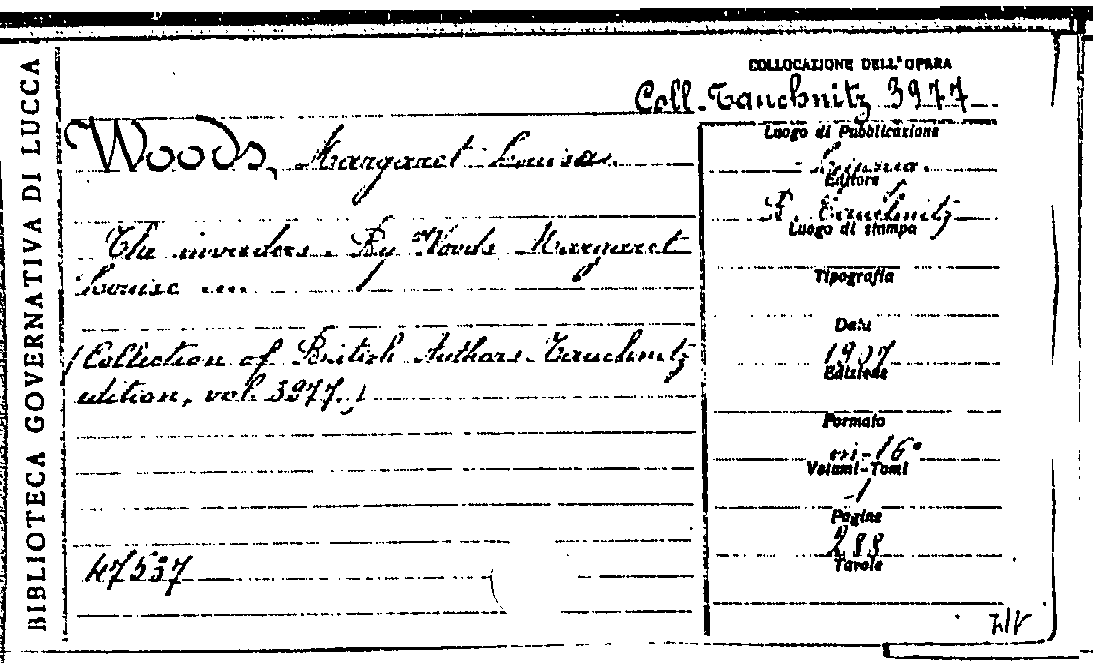 BIBLIOTECA GOVERNATIVA DI LUCCA
COLLOCAZIONE DELL'OPERA
Coll. Tauchnitz 3977
Woods, Margaret Louisa.
The invaders. By Woods Margaret
Louise
(Collection of British Authors. Tauchnitz
edition, vol. 3977.)
47537
Luogo di Pubblicazione
Editore
B. Tauchnitz
Luogo di stampa
Tipografia
Data
1907
Edizione
Formato
in-16°
Volumi-Tomi
1
Pagine
288
Tavole